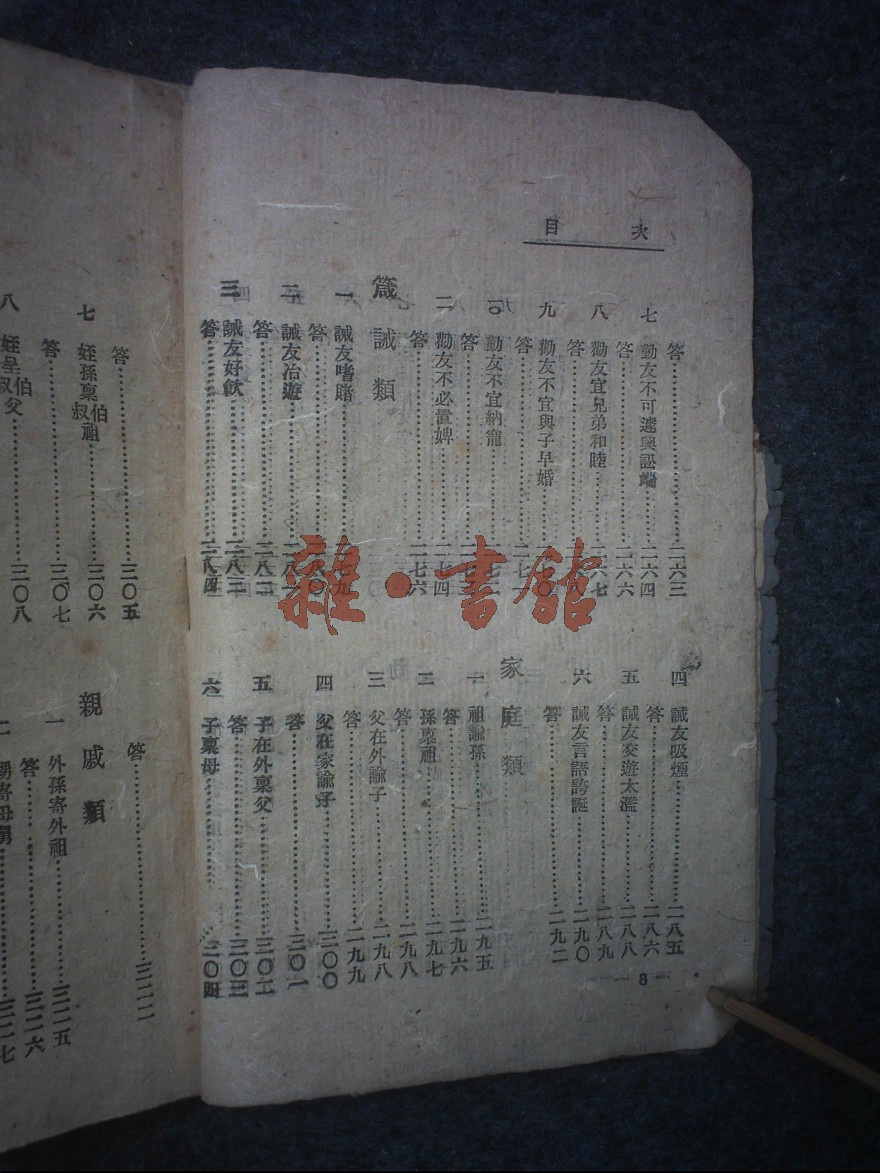 目 次
答……二六三
七 勸友不可遽興訟端……二六四
答……二六六
八 勸友宜兄弟和睦……二六七
答……八
九 勸友不宜與子早婚……〇
答……二七一
一〇 勸友不宜納寵……二七二
答……
一一 勸友不必置婢……二七四
答……二七六
箴誡類
一 誡友嗜賭……二七九
答……二八〇
二 誡友冶遊……二八一
答……二八二
三 誡友好飲……二八三
答……二八四
四 誡友吸煙……二八五
答……二八六
五 誡友交遊太濫……二八八
答……二八九
六 誡友言語誇誕……二九〇
答……二九二
家庭類
一 祖諭孫……二九五
答……二九六
二 孫稟祖……二九七
答……二九八
三 父在外諭子……二九八
答……二九九
四 父在家諭子……三〇〇
答……三〇一
五 子在外稟父……三〇二
答……三〇三
六 子稟母……三〇四
— 8 —
答……三〇五
七 姪孫稟伯叔祖……三〇六
答……三〇七
八 姪呈伯叔父……三〇八
答……三二二
親戚類
一 外孫寄外祖……三二五
答……三二六
二 甥寄母舅……三二七
雜·書館